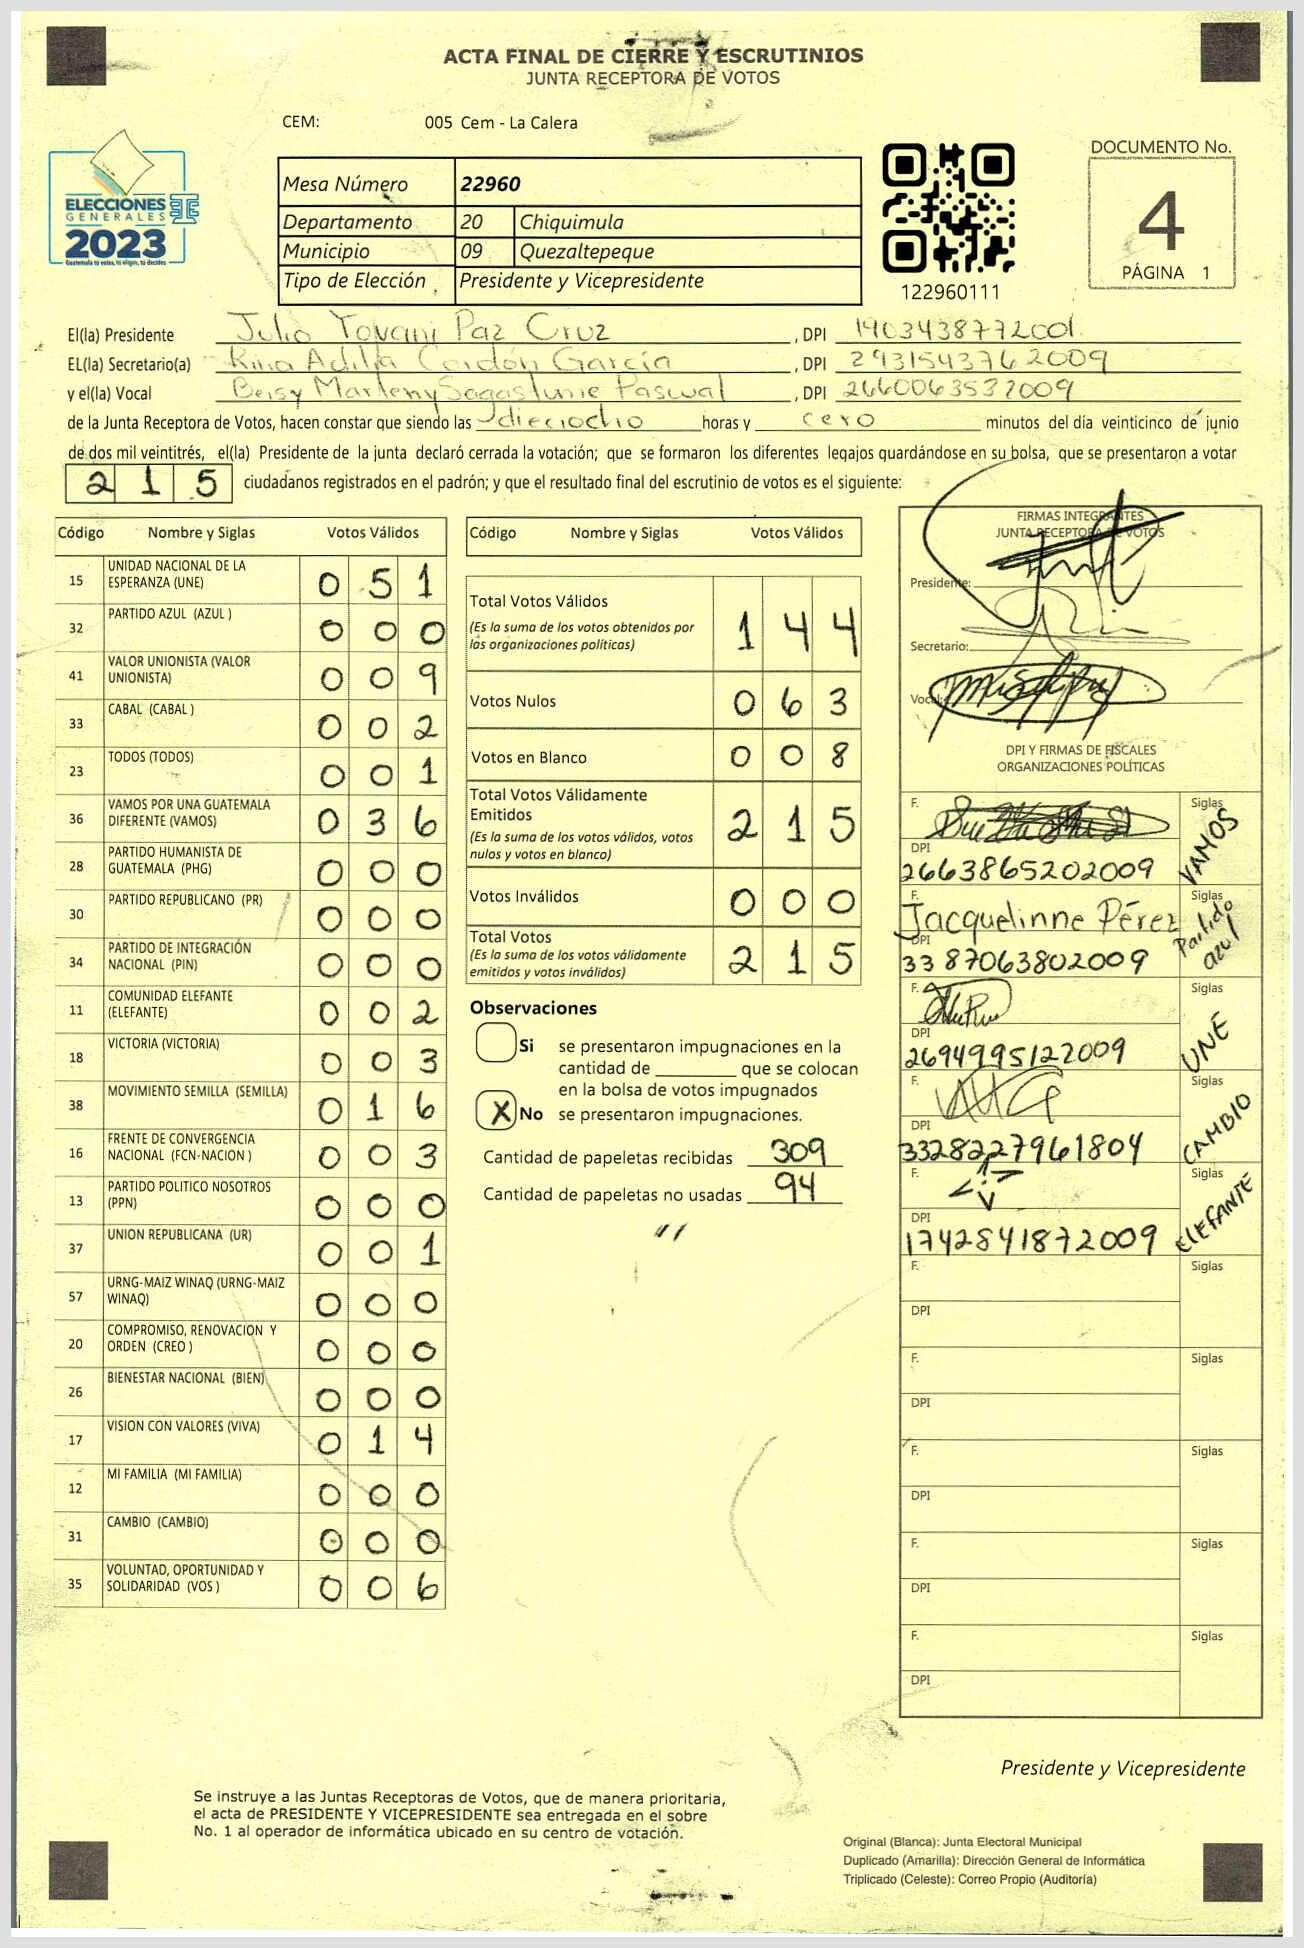 ACTA FINAL DE CIERRE Y ESCRUTINIOS
JUNTA RECEPTORA DE VOTOS
CEM: 005 Cem - La Calera
ELECCIONES
GENERALES
2023
Guatemala tú votas, tú eliges, tú decides
Mesa Número 22960
Departamento 20 Chiquimula
Municipio 09 Quezaltepeque
Tipo de Elección Presidente y Vicepresidente
122960111
DOCUMENTO No.
4
PÁGINA 1
El(la) Presidente Julio Yovani Paz Cruz , DPI 1903438772001
EL(la) Secretario(a) Rina Adilia Cordón García , DPI 2931543762009
y el(la) Vocal Beisy Marleny Sagastume Pascual , DPI 2660063532009
de la Junta Receptora de Votos, hacen constar que siendo las dieciocho horas y cero minutos del día veinticinco de junio
de dos mil veintitrés, el(la) Presidente de la junta declaró cerrada la votación; que se formaron los diferentes legajos guardándose en su bolsa, que se presentaron a votar
215 ciudadanos registrados en el padrón; y que el resultado final del escrutinio de votos es el siguiente:
Código Nombre y Siglas Votos Válidos
15 UNIDAD NACIONAL DE LA ESPERANZA (UNE) 051
32 PARTIDO AZUL (AZUL ) 000
41 VALOR UNIONISTA (VALOR UNIONISTA) 009
33 CABAL (CABAL ) 002
23 TODOS (TODOS) 001
36 VAMOS POR UNA GUATEMALA DIFERENTE (VAMOS) 036
28 PARTIDO HUMANISTA DE GUATEMALA (PHG) 000
30 PARTIDO REPUBLICANO (PR) 000
34 PARTIDO DE INTEGRACIÓN NACIONAL (PIN) 000
11 COMUNIDAD ELEFANTE (ELEFANTE) 002
18 VICTORIA (VICTORIA) 003
38 MOVIMIENTO SEMILLA (SEMILLA) 016
16 FRENTE DE CONVERGENCIA NACIONAL (FCN-NACION ) 003
13 PARTIDO POLITICO NOSOTROS (PPN) 000
37 UNION REPUBLICANA (UR) 001
57 URNG-MAIZ WINAQ (URNG-MAIZ WINAQ) 000
20 COMPROMISO, RENOVACION Y ORDEN (CREO ) 000
26 BIENESTAR NACIONAL (BIEN) 000
17 VISION CON VALORES (VIVA) 014
12 MI FAMILIA (MI FAMILIA) 000
31 CAMBIO (CAMBIO) 000
35 VOLUNTAD, OPORTUNIDAD Y SOLIDARIDAD (VOS ) 006
Código Nombre y Siglas Votos Válidos
Total Votos Válidos 144
(Es la suma de los votos obtenidos por
las organizaciones políticas)
Votos Nulos 063
Votos en Blanco 008
Total Votos Válidamente
Emitidos 215
(Es la suma de los votos válidos, votos
nulos y votos en blanco)
Votos Inválidos 000
Total Votos 215
(Es la suma de los votos válidamente
emitidos y votos inválidos)
Observaciones
Si se presentaron impugnaciones en la
cantidad de ________ que se colocan
en la bolsa de votos impugnados
X No se presentaron impugnaciones.
Cantidad de papeletas recibidas 309
Cantidad de papeletas no usadas 94
FIRMAS INTEGRANTES
JUNTA RECEPTORA DE VOTOS
Presidente:
Secretario:
Vocal:
DPI Y FIRMAS DE FISCALES
ORGANIZACIONES POLÍTICAS
F. Siglas VAMOS
DPI 2663865202009
F. Jacquelinne Pérez Siglas Partido azul
DPI 3387063802009
F. Siglas UNE
DPI 2694995122009
F. Siglas CAMBIO
DPI 3328227961804
F. Siglas ELEFANTE
DPI 1742841872009
F. Siglas
DPI
F. Siglas
DPI
F. Siglas
DPI
F. Siglas
DPI
F. Siglas
DPI
Presidente y Vicepresidente
Se instruye a las Juntas Receptoras de Votos, que de manera prioritaria,
el acta de PRESIDENTE Y VICEPRESIDENTE sea entregada en el sobre
No. 1 al operador de informática ubicado en su centro de votación.
Original (Blanca): Junta Electoral Municipal
Duplicado (Amarilla): Dirección General de Informática
Triplicado (Celeste): Correo Propio (Auditoría)